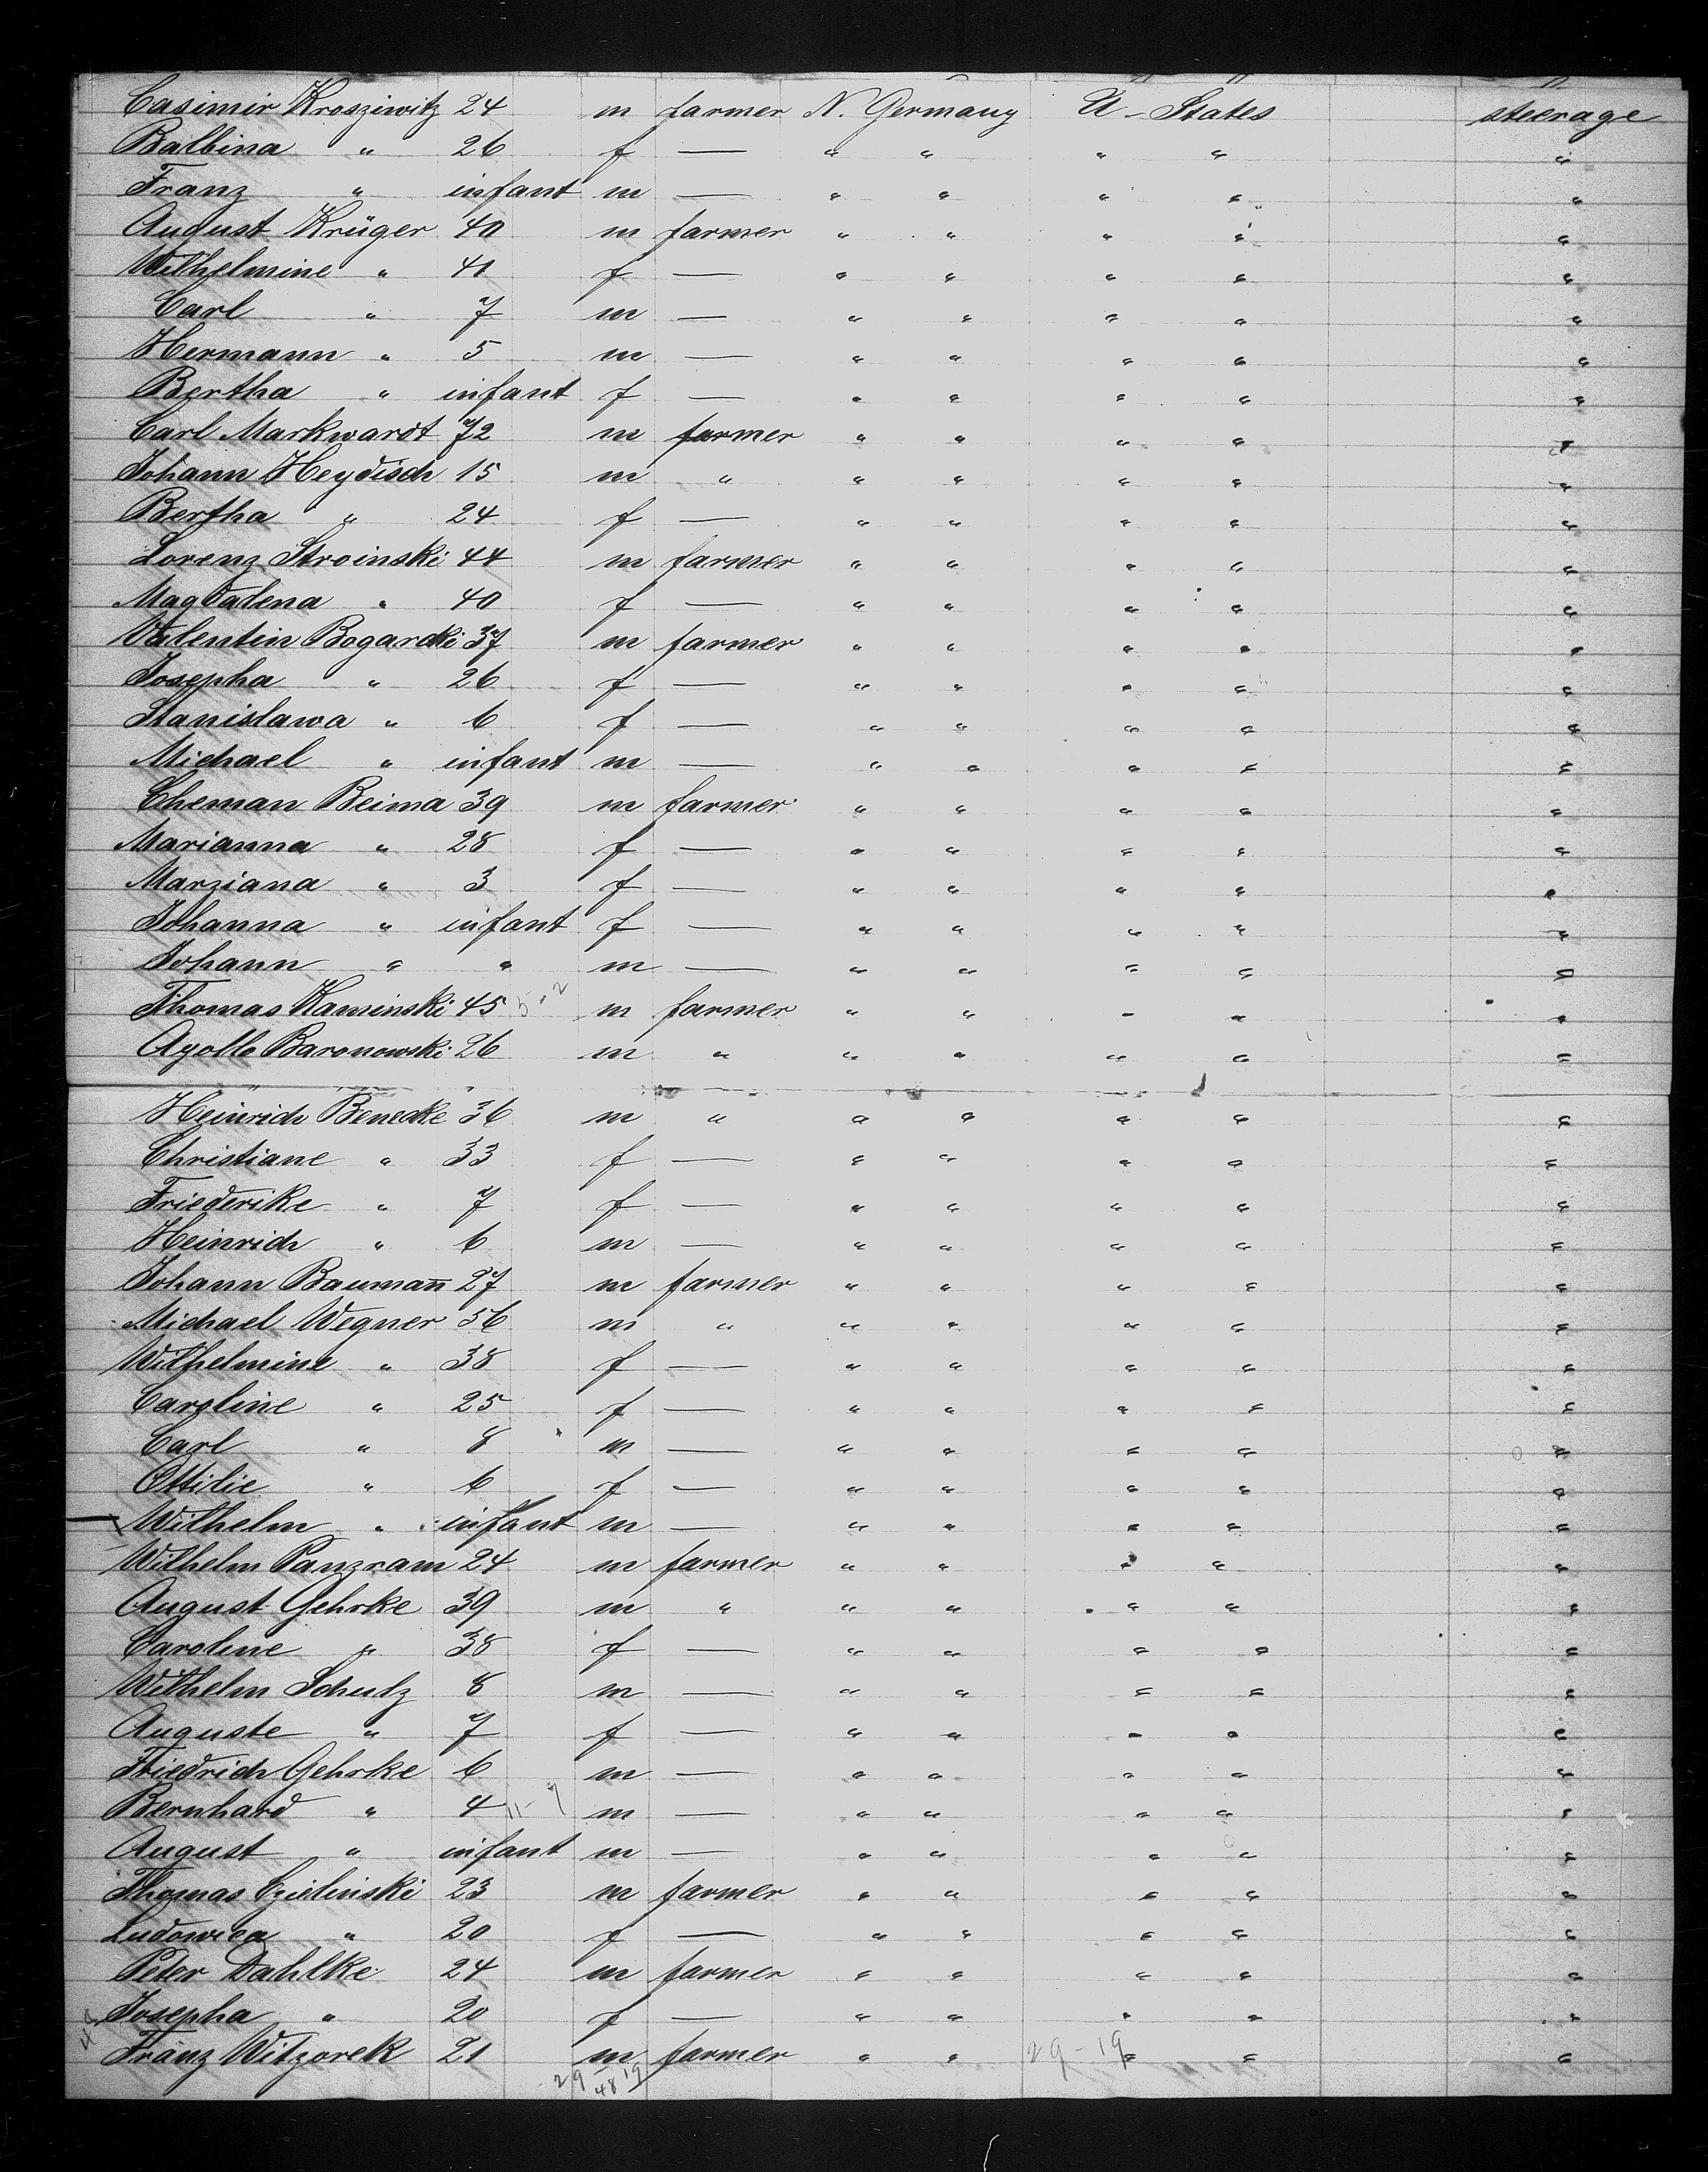 Casimir Krosziwitz 24 m farmer N. Germany U-States steerage
Balbina " 26 f — " " " " "
Franz " infant m — " " " " "
August Krüger 40 m farmer " " " " "
Wilhelmine " 41 f — " " " " "
Carl " 7 m — " " " " "
Hermann " 5 m — " " " " "
Bertha " infant f — " " " " "
Carl Markwardt 72 m farmer " " " " "
Johann Heydisch 15 m " " " " " "
Bertha " 24 f — " " " " "
Lorenz Stroinski 44 m farmer " " " " "
Magdalena " 40 f — " " " " "
Valentin Bogardki 37 m farmer " " " " "
Josepha " 26 f — " " " " "
Stanislawa " 6 f — " " " " "
Michael " infant m — " " " " "
Cheman Beima 39 m farmer " " " " "
Marianna " 28 f — " " " " "
Marziana " 3 f — " " " " "
Johanna " infant f — " " " " "
Johann " " m — " " " " "
Thomas Kaminski 45 m farmer " " " " "
Apollo Baronowski 26 m " " " " " "
Heinrich Benecke 36 m " " " " " "
Christiane " 33 f — " " " " "
Friederike " 7 f — " " " " "
Heinrich " 6 m — " " " " "
Johann Baumañ 27 m farmer " " " " "
Michael Wegner 56 m " " " " " "
Wilhelmine " 38 f — " " " " "
Caroline " 25 f — " " " " "
Carl " 8 m — " " " " "
Ottilie " 6 f — " " " " "
Wilhelm " infant m — " " " " "
Wilhelm Panzram 24 m farmer " " " " "
August Gehrke 39 m " " " " " "
Caroline " 38 f — " " " " "
Wilhelm Schulz 8 m — " " " " "
Auguste " 7 f — " " " " "
Friedrich Gehrke 6 m — " " " " "
Bernhard " 4 11-7 m — " " " " "
August " infant m — " " " " "
Thomas Czielinski 23 m farmer " " " " "
Ludowica " 20 f — " " " " "
Peter Dahlke 24 m farmer " " " " "
Josepha " 20 f — " " " " "
Franz Witzorek 21 m farmer " " 29-19 " " "
29 19
48